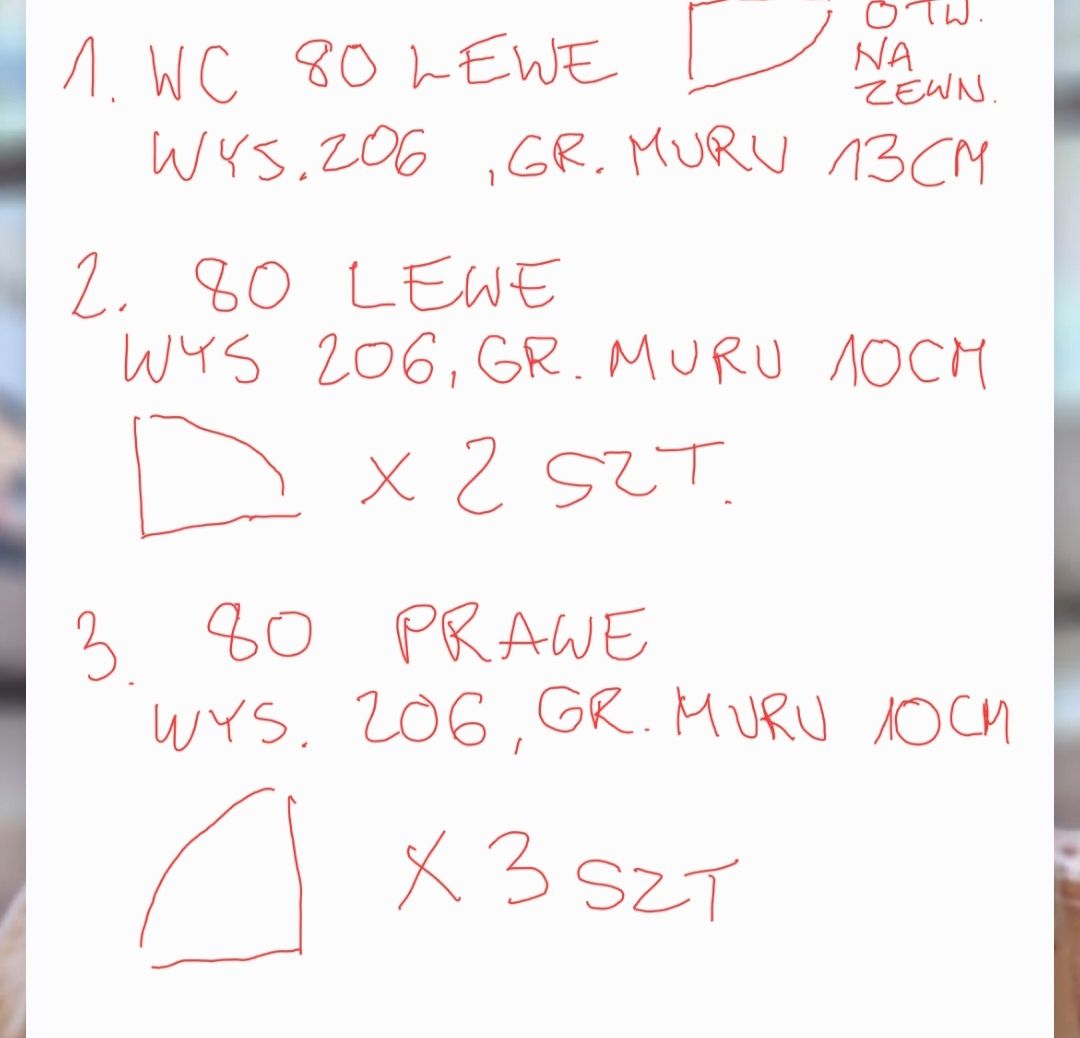 1. WC 80 LEWE
OTW.
NA
ZEWN.
WYS. 206, GR. MURU 13CM
2. 80 LEWE
WYS 206, GR. MURU 10CM
x 2 SZT.
3. 80 PRAWE
WYS. 206, GR. MURU 10CM
X 3 SZT